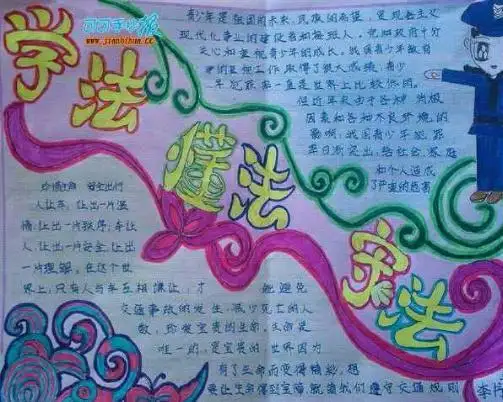 可可手抄报
学法
懂法
守法
青少年是祖国的未来,民族的希望,是现代化主义
现代化事业的建设者和接班人。党和政府十分
关心和重视青少年的成长。我国青少年教育
工作取得了很大成绩,青少
年犯罪率一直是世界上比较低的。
但近年来由于各种消极
因素和各种不良环境的
影响,我国青少年犯罪
率日渐突出,给社会、家庭
和个人造成
了严重的危害
珍惜生命 安全出行
人让车,让出一片温
情;让出一片秩序;车让
人,让出一片安全;让出
一片理解。在这个世
界上,只有人与车互相谦让,才 能避免
交通事故的发生,减少死亡的人
数,珍爱宝贵的生命,生命是
唯一的,是宝贵的,世界因为
有了生命而变得精彩,想
要让生命得到宝障,就请我们遵守交通规则